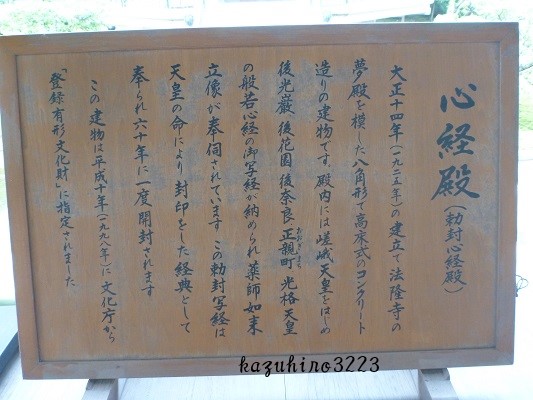 心経殿(勅封心経殿)
大正十四年(一九二五年)の建立で法隆寺の
夢殿を模した八角形で高床式のコンクリート
造りの建物です。殿内には嵯峨天皇をはじめ
後光厳 後花園 後奈良 正親町 光格天皇
おおぎまち
の般若心経の御写経が納められ薬師如来
立像が奉伺されています この勅封写経は
天皇の命により封印をした経典として
奉られ六十年に一度開封されます
この建物は平成十年(一九九八年)に文化庁から
「登録有形文化財」に指定されました
kazuhiro3223